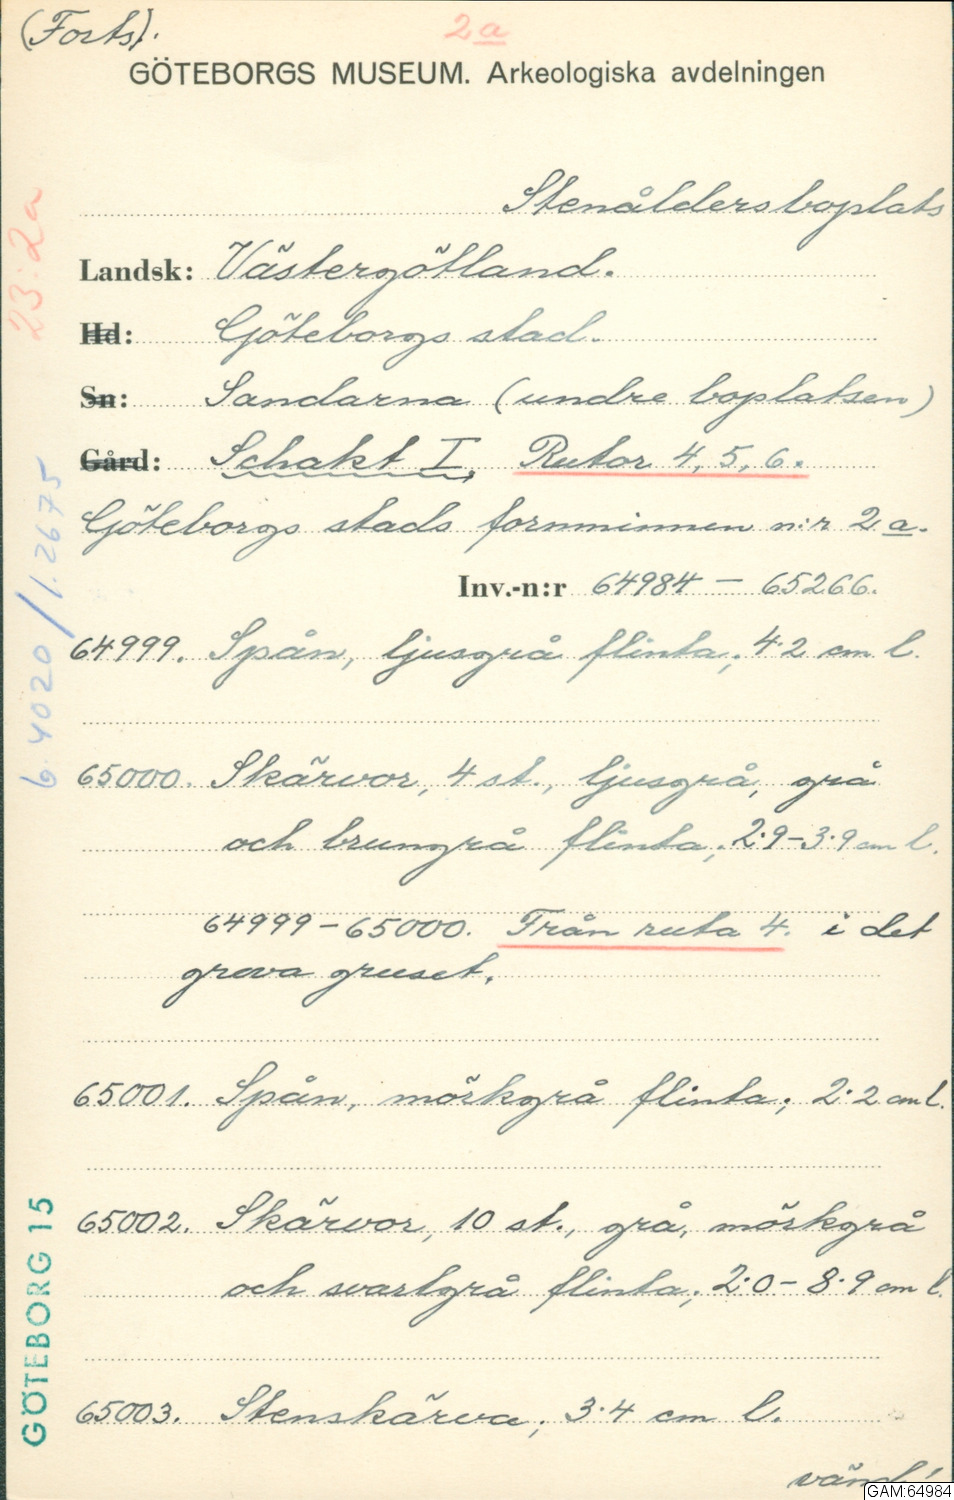 (Forts).
2a
GÖTEBORGS MUSEUM. Arkeologiska avdelningen
Stenåldersboplats
Landsk: Västergötland.
Hd: Göteborgs stad.
Sn: Sandarna (undre boplatsen)
Gård: Schakt I, Rutor 4, 5, 6.
Göteborgs stads fornminnen n:r 2a.
Inv.-n:r 64984 — 65266.
64999. Spån, ljusgrå flinta; 4.2 cm l.
65000. Skärvor, 4 st., ljusgrå, grå
och brungrå flinta; 2.9–3.9 cm l.
64999–65000. Från ruta 4. i det
grova gruset.
65001. Spån, mörkgrå flinta; 2.2 cm l.
65002. Skärvor, 10 st., grå, mörkgrå
och svartgrå flinta; 2.0–8.9 cm l.
65003. Stenskärva; 3.4 cm l.
vänd!
23:2a
6.4020/1.2675
GÖTEBORG 15
GAM:64984